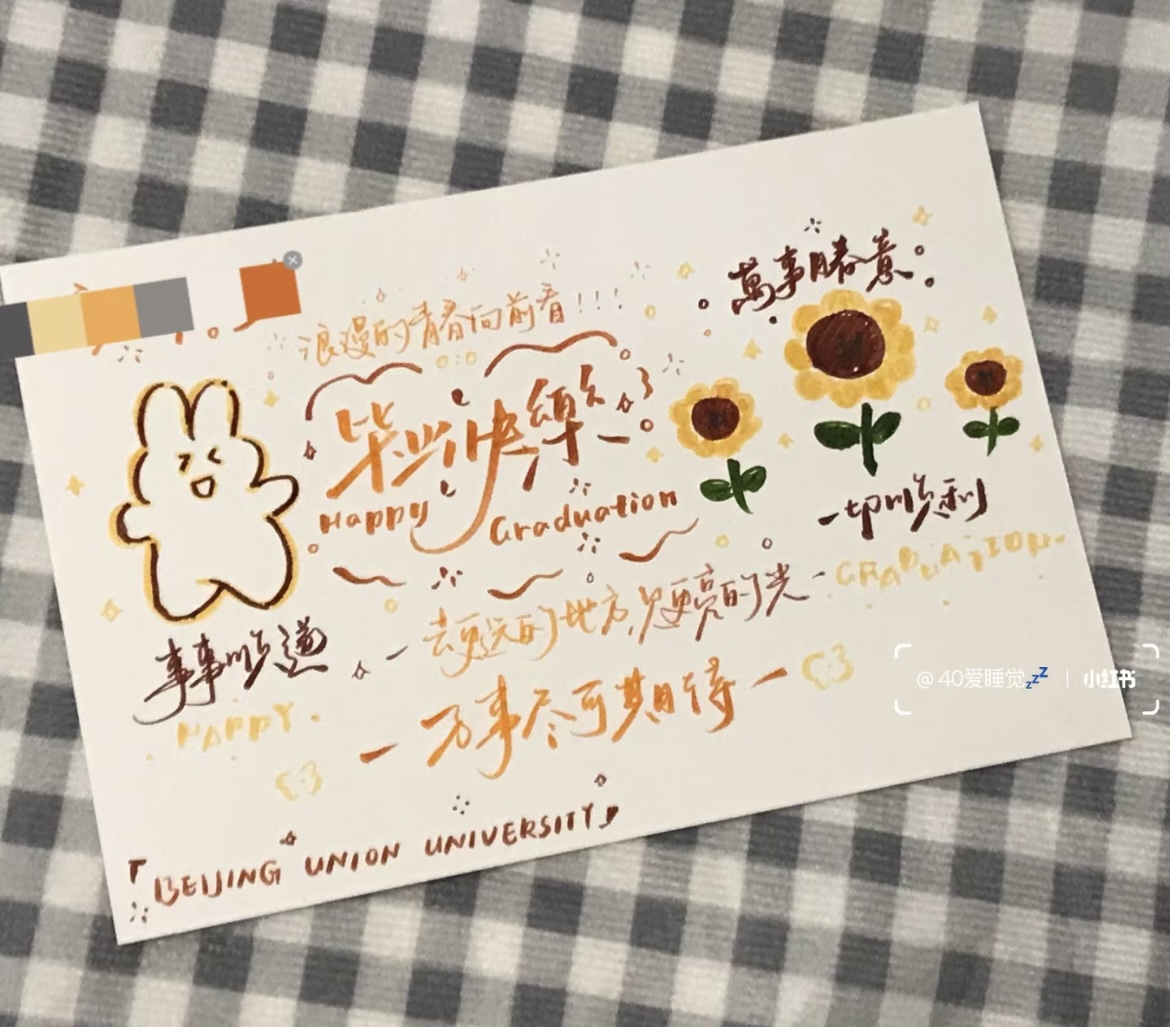 浪漫的青春向前看!!!
萬事勝意
毕业快樂
Happy Graduation
一切顺利
GRADUATION.
去更远的地方,见更亮的光
事事顺遂
HAPPY.
万事尽可期待
「BEIJING UNION UNIVERSITY」
@40爱睡觉💤 | 小红书